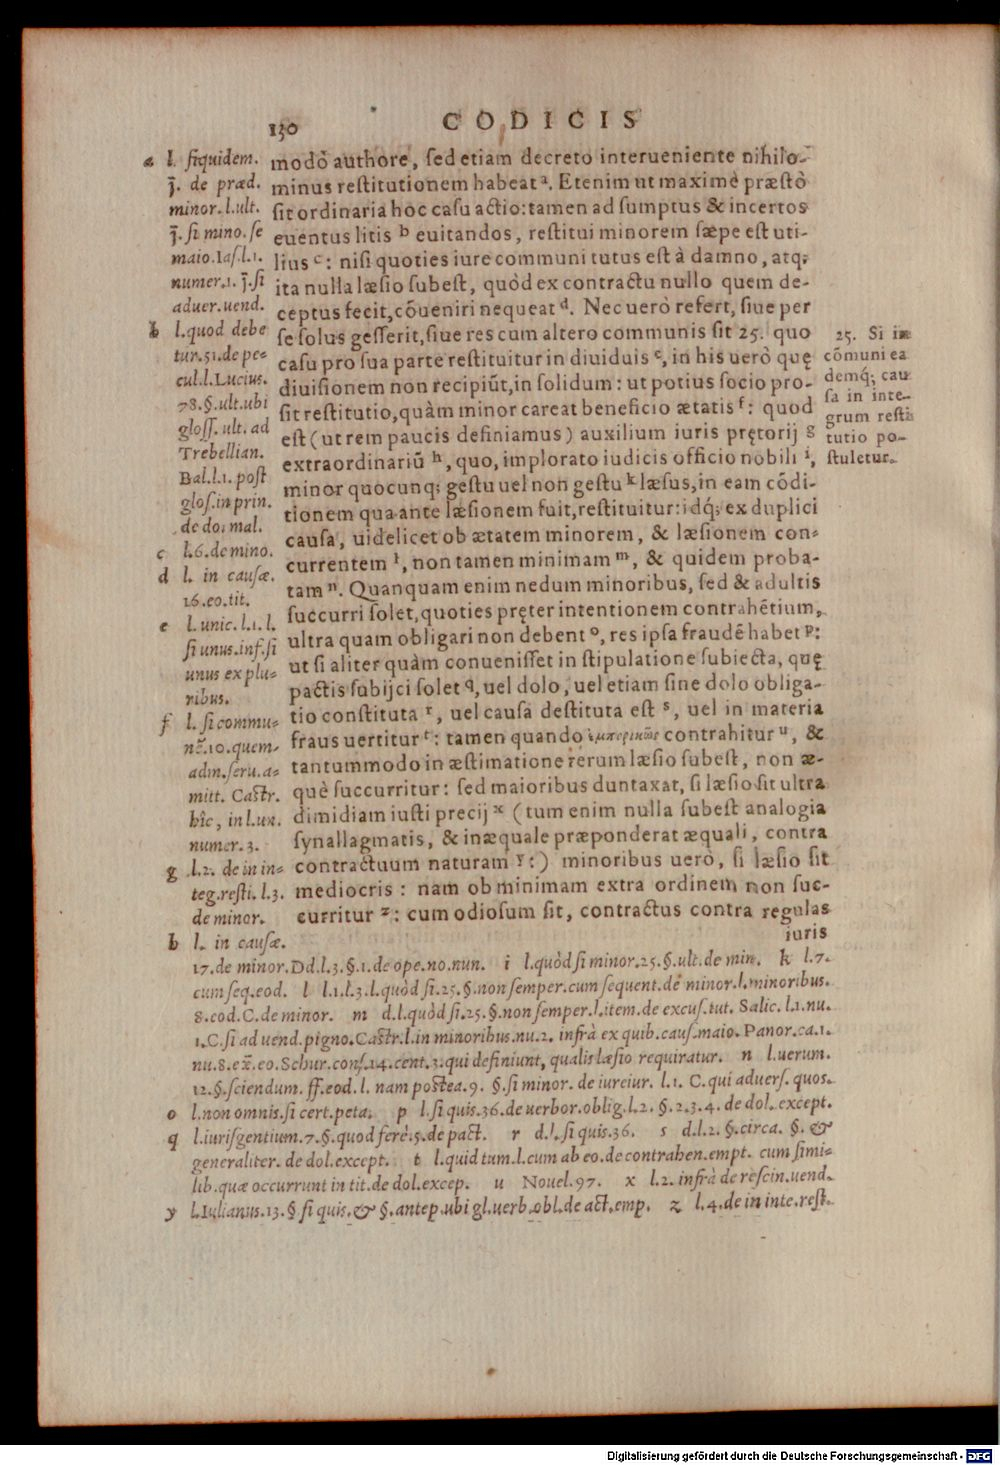 130
CODICIS
modò authore, sed etiam decreto interueniente nihilo-
minus restitutionem habeat a. Etenim ut maximè præstò
sit ordinaria hoc casu actio: tamen ad sumptus & incertos
euentus litis b euitandos, restitui minorem sæpe est uti-
lius c: nisi quoties iure communi tutus est à damno, atq;
ita nulla læsio subest, quòd ex contractu nullo quem de-
ceptus fecit, cōueniri nequeat d. Nec uerò refert, siue per
se solus gesserit, siue res cum altero communis sit 25. quo
casu pro sua parte restituitur in diuiduis e, in his uerò quę
diuisionem non recipiūt, in solidum: ut potius socio pro-
sit restitutio, quàm minor careat beneficio ætatis f: quod
est (ut rem paucis definiamus) auxilium iuris prętorij g
extraordinariū h, quo, implorato iudicis officio nobili i,
minor quocunq; gestu uel non gestu k læsus, in eam cōdi-
tionem qua ante læsionem fuit, restituitur: idq́; ex duplici
causa, uidelicet ob ætatem minorem, & læsionem con-
currentem l, non tamen minimam m, & quidem proba-
tam n. Quanquam enim nedum minoribus, sed & adultis
succurri solet, quoties pręter intentionem contrahētium,
ultra quam obligari non debent o, res ipsa fraudē habet p:
ut si aliter quàm conuenisset in stipulatione subiecta, quę
pactis subijci solet q, uel dolo, uel etiam sine dolo obliga-
tio constituta r, uel causa destituta est s, uel in materia
fraus uertitur t: tamen quando contrahitur u, &
tantummodo in æstimatione rerum læsio subest, non æ-
què succurritur: sed maioribus duntaxat, si læsio sit ultra
dimidiam iusti precij x (tum enim nulla subest analogia
synallagmatis, & inæquale præponderat æquali, contra
contractuum naturam y:) minoribus uerò, si læsio sit
mediocris: nam ob minimam extra ordinem non suc-
curritur z: cum odiosum sit, contractus contra regulas
iuris
a l. siquidem.
j̄. de præd.
minor. l. ult.
j̄. si mino. se
maio. Ias. l. 1.
numer. 1. j̄. si
aduer. uend.
b l. quod debe
tur. 51. de pe-
cul. l. Lucius.
78. §. ult. ubi
gloss. ult. ad
Trebellian.
Bal. l. 1. post
glos. in prin.
de do. mal.
c l. 6. de mino.
d l. in causæ.
16. eo. tit.
e l. unic. l. 1. l.
si unus. inf. si
unus ex plu-
ribus.
f l. si commu-
nē. 10. quem-
adm. seru. a-
mitt. Castr.
hîc, in l. un.
numer. 3.
g l. 2. de in in-
teg. resti. l. 3.
de minor.
h l. in causæ.
25. Si in
cōmuni ea
demq́; cau
sa in inte-
grum resti
tutio po-
stuletur.
17. de minor. Dd. l. 3. §. 1. de ope. no. nun. i l. quòd si minor. 25. §. ult. de min. k l. 7.
cum seq. eod. l l. 1. l. 3. l. quòd si. 25. §. non semper. cum sequent. de minor. l. minoribus.
8. cod. C. de minor. m d. l. quòd si. 25. §. non semper. l. item. de excus. tut. Salic. l. 1. nu.
1. C. si ad uend. pigno. Castr. l. in minoribus. nu. 2. infrà ex quib. caus. maio. Panor. ca. 1.
nu. 8. ex̄. eo. Schur. cons. 14. cent. 3. qui definiunt, qualis læsio requiratur. n l. uerum.
12. §. sciendum. ff. eod. l. nam postea. 9. §. si minor. de iureiur. l. 1. C. qui aduers. quos.
o l. non omnis. si cert. peta. p l. si quis. 36. de uerbor. oblig. l. 2. §. 2. 3. 4. de dol. except.
q l. iurisgentium. 7. §. quod ferè. 5. de pact. r d. l. si quis. 36. s d. l. 2. §. circa. §. &
generaliter. de dol. except. t l. quid tum. l. cum ab eo. de contrahen. empt. cum simi-
lib. quæ occurrunt in tit. de dol. excep. u Nouel. 97. x l. 2. infrà de rescin. uend.
y l. Iulianus. 13. § si quis. & §. antep. ubi gl. uerb. obl. de act. emp. z l. 4. de in inte. rest.
Digitalisierung gefördert durch die Deutsche Forschungsgemeinschaft - DFG